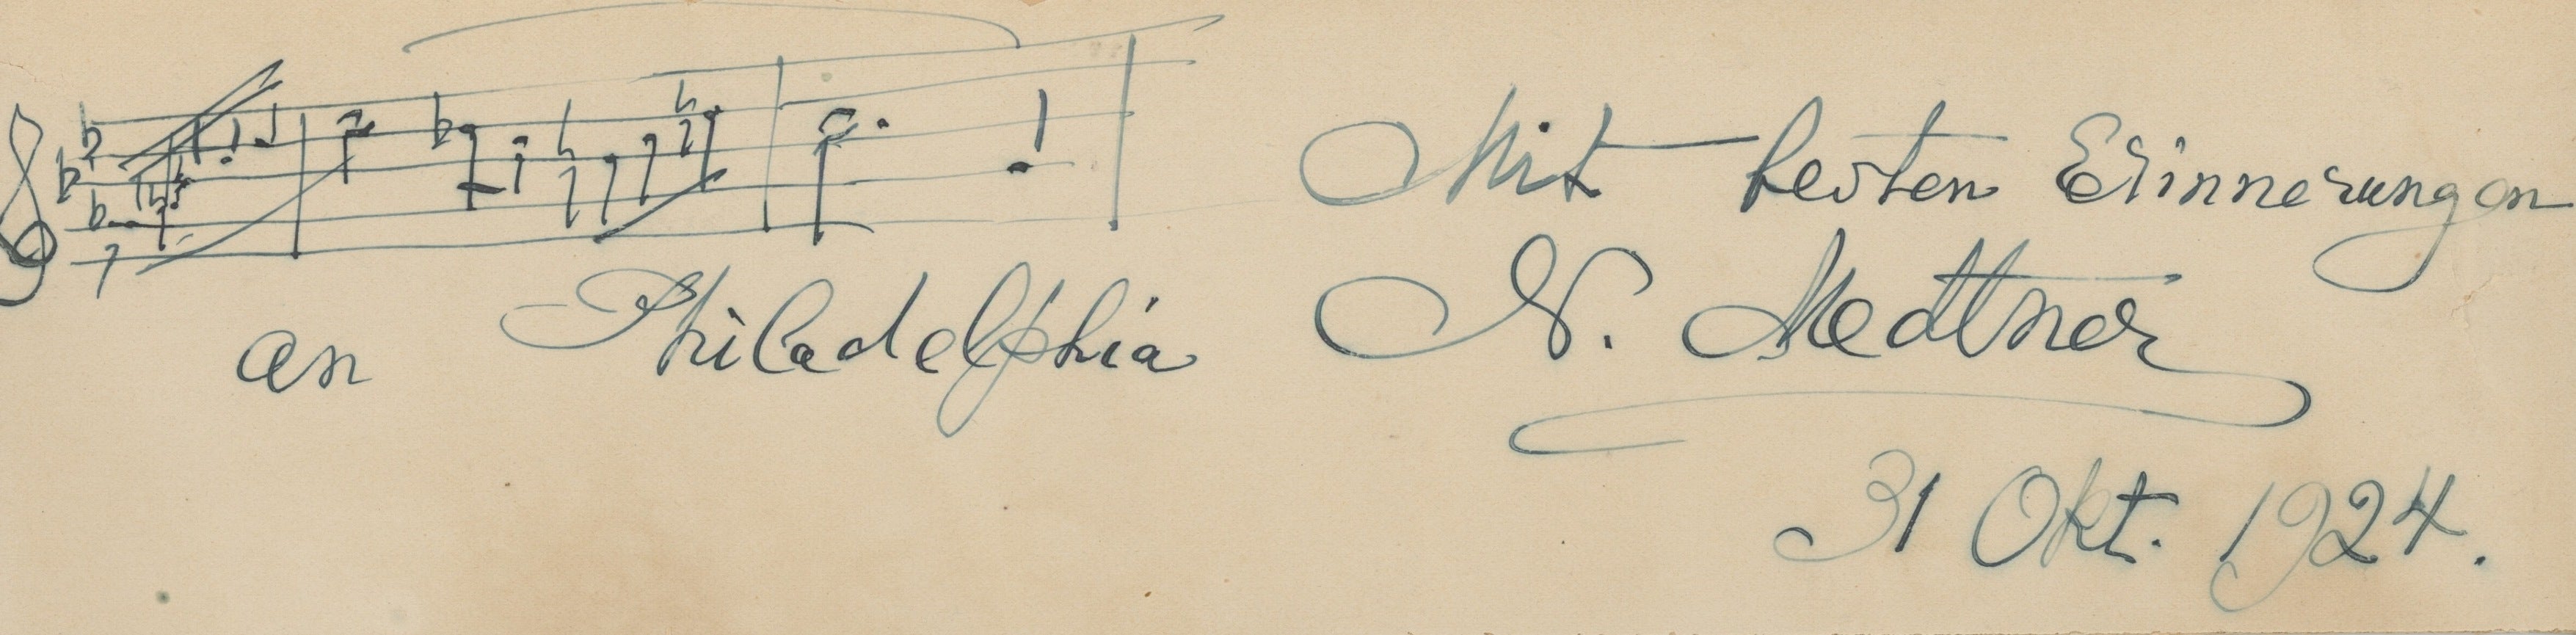 Mit besten Erinnerungen
an Philadelphia N. Medtner
31 Okt. 1924.